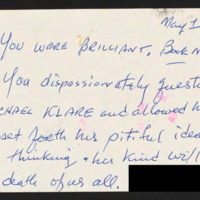 May 1
YOU WERE BRILLIANT. Book N
You dispassionately questi
CHAEL KLARE and allowed h
set forth his pitiful idea
thinking. his kind will
death of us all.